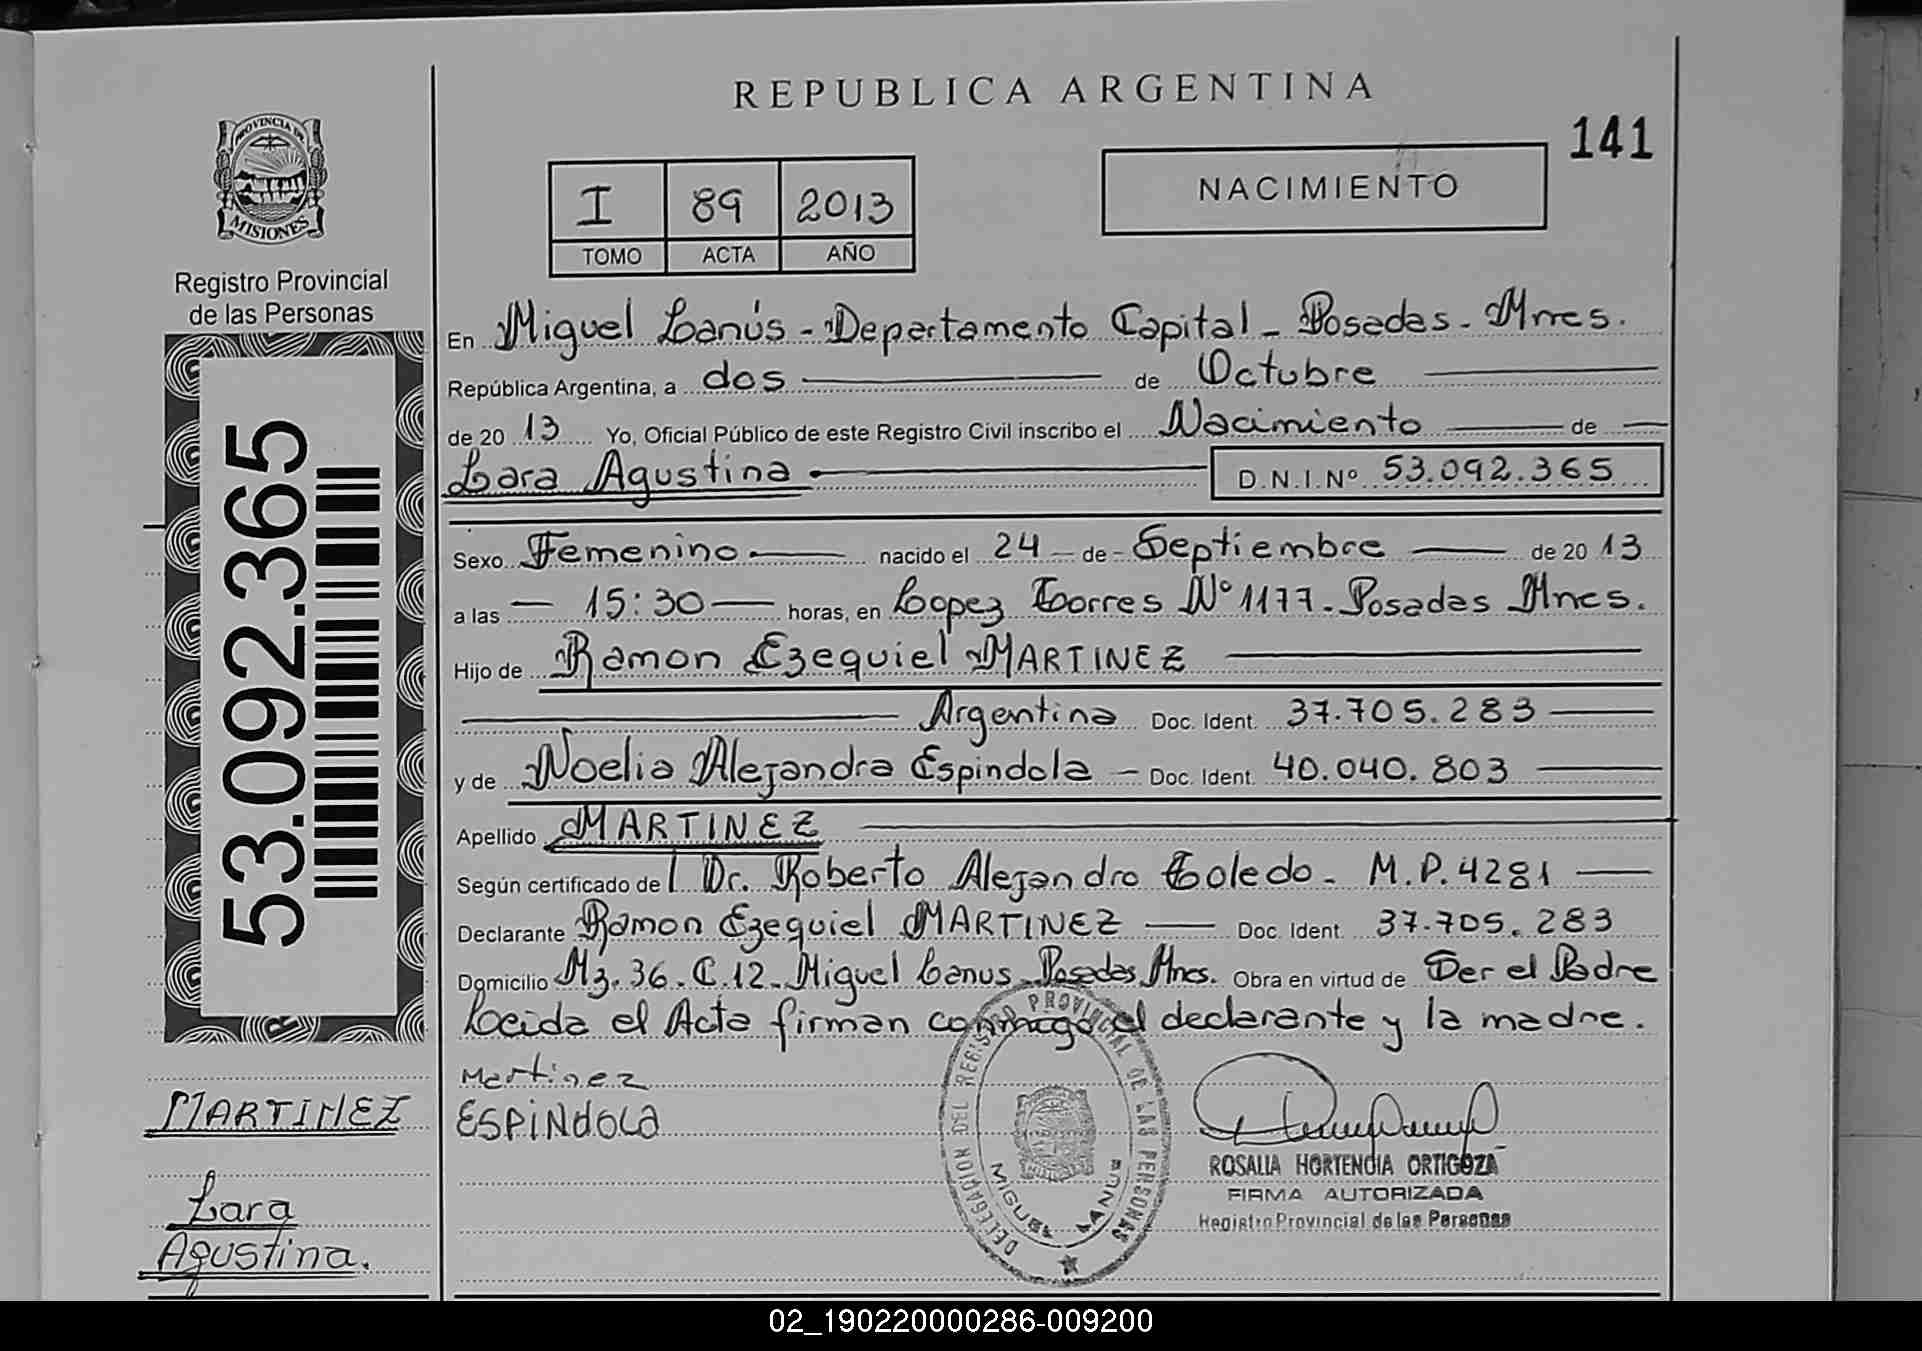 REPUBLICA ARGENTINA
141
PROVINCIA DE
MISIONES
Registro Provincial
de las Personas
53.092.365
I 89 2013
TOMO ACTA AÑO
NACIMIENTO
En Miguel Lanús - Departamento Capital - Posadas - Mnes.
República Argentina, a dos de Octubre
de 20 13 Yo, Oficial Público de este Registro Civil inscribo el Nacimiento de
Lara Agustina D.N.I.Nº 53.092.365
Sexo Femenino nacido el 24 - de - Septiembre de 20 13
a las 15:30 horas, en Lopez Torres Nº 1177 - Posadas Mnes.
Hijo de Ramon Ezequiel MARTINEZ
Argentina Doc. Ident. 37.705.283
y de Noelia Alejandra Espindola - Doc. Ident. 40.040.803
Apellido MARTINEZ
Según certificado del Dr. Roberto Alejandro Toledo - M.P. 4281
Declarante Ramon Ezequiel MARTINEZ Doc. Ident. 37.705.283
Domicilio Mz. 36 - C. 12 - Miguel Lanus - Posadas Mnes. Obra en virtud de Ser el Padre
Leida el Acta firman conmigo el declarante y la madre.
Martinez
ESPINDOLA
MARTINEZ
Lara
Agustina.
DELEGACION DEL REGISTRO PROVINCIAL DE LAS PERSONAS
MIGUEL LANUS
ROSALIA HORTENCIA ORTIGOZA
FIRMA AUTORIZADA
Registro Provincial de las Personas
02_190220000286-009200